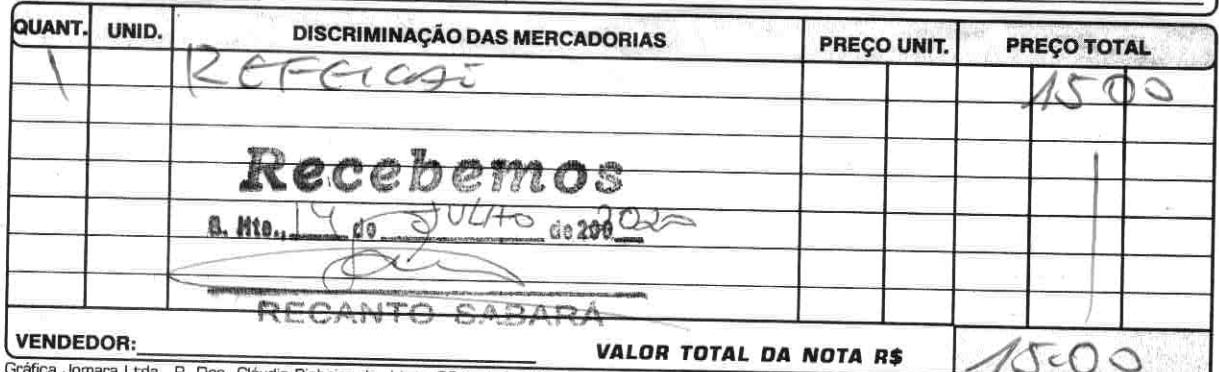 QUANT. UNID. DISCRIMINAÇÃO DAS MERCADORIAS PREÇO UNIT. PREÇO TOTAL
1 REFEICAÕ 15 00
Recebemos
B. Hte., 14 de JULHO de 200 2020
RECANTO SABARÁ
VENDEDOR: VALOR TOTAL DA NOTA R$ 15.00
Gráfica Jomara Ltda.